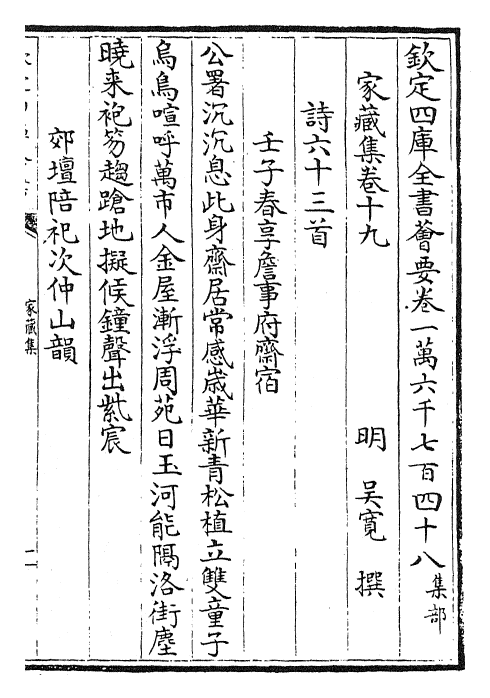 欽定四庫全書薈要卷一萬六千七百四十八集部
家藏集卷十九
明 吳寬 撰
詩六十三首
壬子春享詹事府齋宿
公署沉沉息此身齋居常感嵗華新青松植立雙童子
烏鳥喧呼萬市人金屋漸浮周苑日玉河能隔洛街塵
曉来袍笏趨蹌地擬候鐘聲出紫宸
郊壇陪祀次仲山韻
家藏集